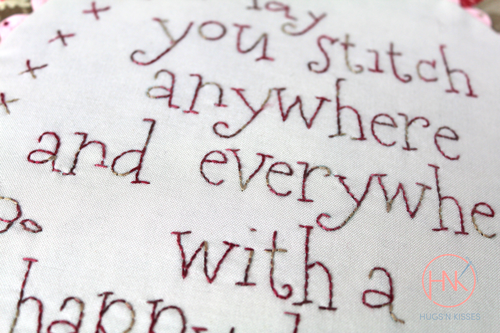 you stitch
anywhere
and everywhe
with a
HNK
HUGS'N KISSES